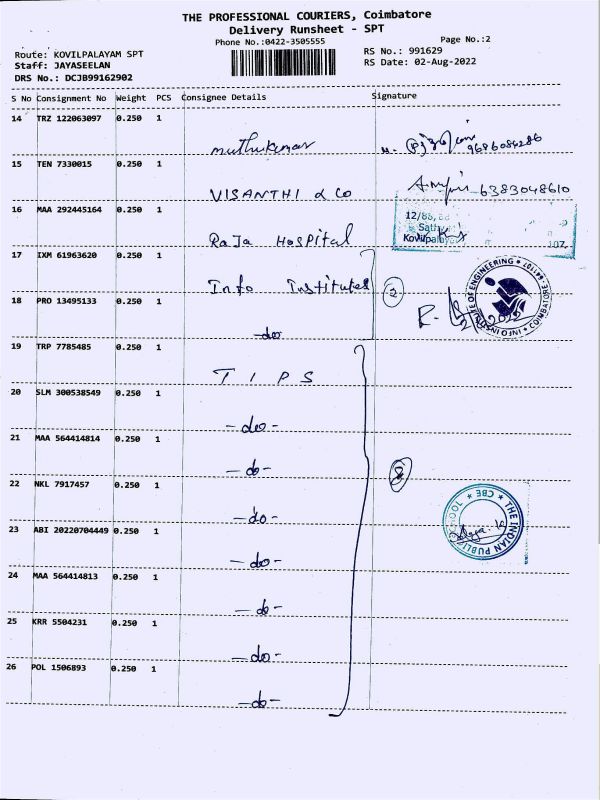 THE PROFESSIONAL COURIERS, Coimbatore
Delivery Runsheet - SPT
Phone No.:0422-3505555
Page No.:2
Route: KOVILPALAYAM SPT
RS No.: 991629
Staff: JAYASEELAN
RS Date: 02-Aug-2022
DRS No.: DCJB99162902
S No Consignment No Weight PCS Consignee Details Signature
14 TRZ 122063097 0.250 1
muthukumar 9686084286
15 TEN 7330015 0.250 1
VISANTHI & CO 6383048610
16 MAA 292445164 0.250 1
RaJa HospitaL
12/86,
Kovilpalayam
107.
17 IXM 61963620 0.250 1
Info Institutes 2
INFO INSTITUTE OF ENGINEERING * COIMBATORE - 641107 *
18 PRO 13495133 0.250 1
-do
19 TRP 7785485 0.250 1
T I P S
20 SLM 300538549 0.250 1
-do-
21 MAA 564414814 0.250 1
-do-
8
22 NKL 7917457 0.250 1
-do-
THE INDIAN PUBLIC SCHOOL * CBE *
23 ABI 20220704449 0.250 1
-do-
24 MAA 564414813 0.250 1
-do-
25 KRR 5504231 0.250 1
-do-
26 POL 1506893 0.250 1
-do-